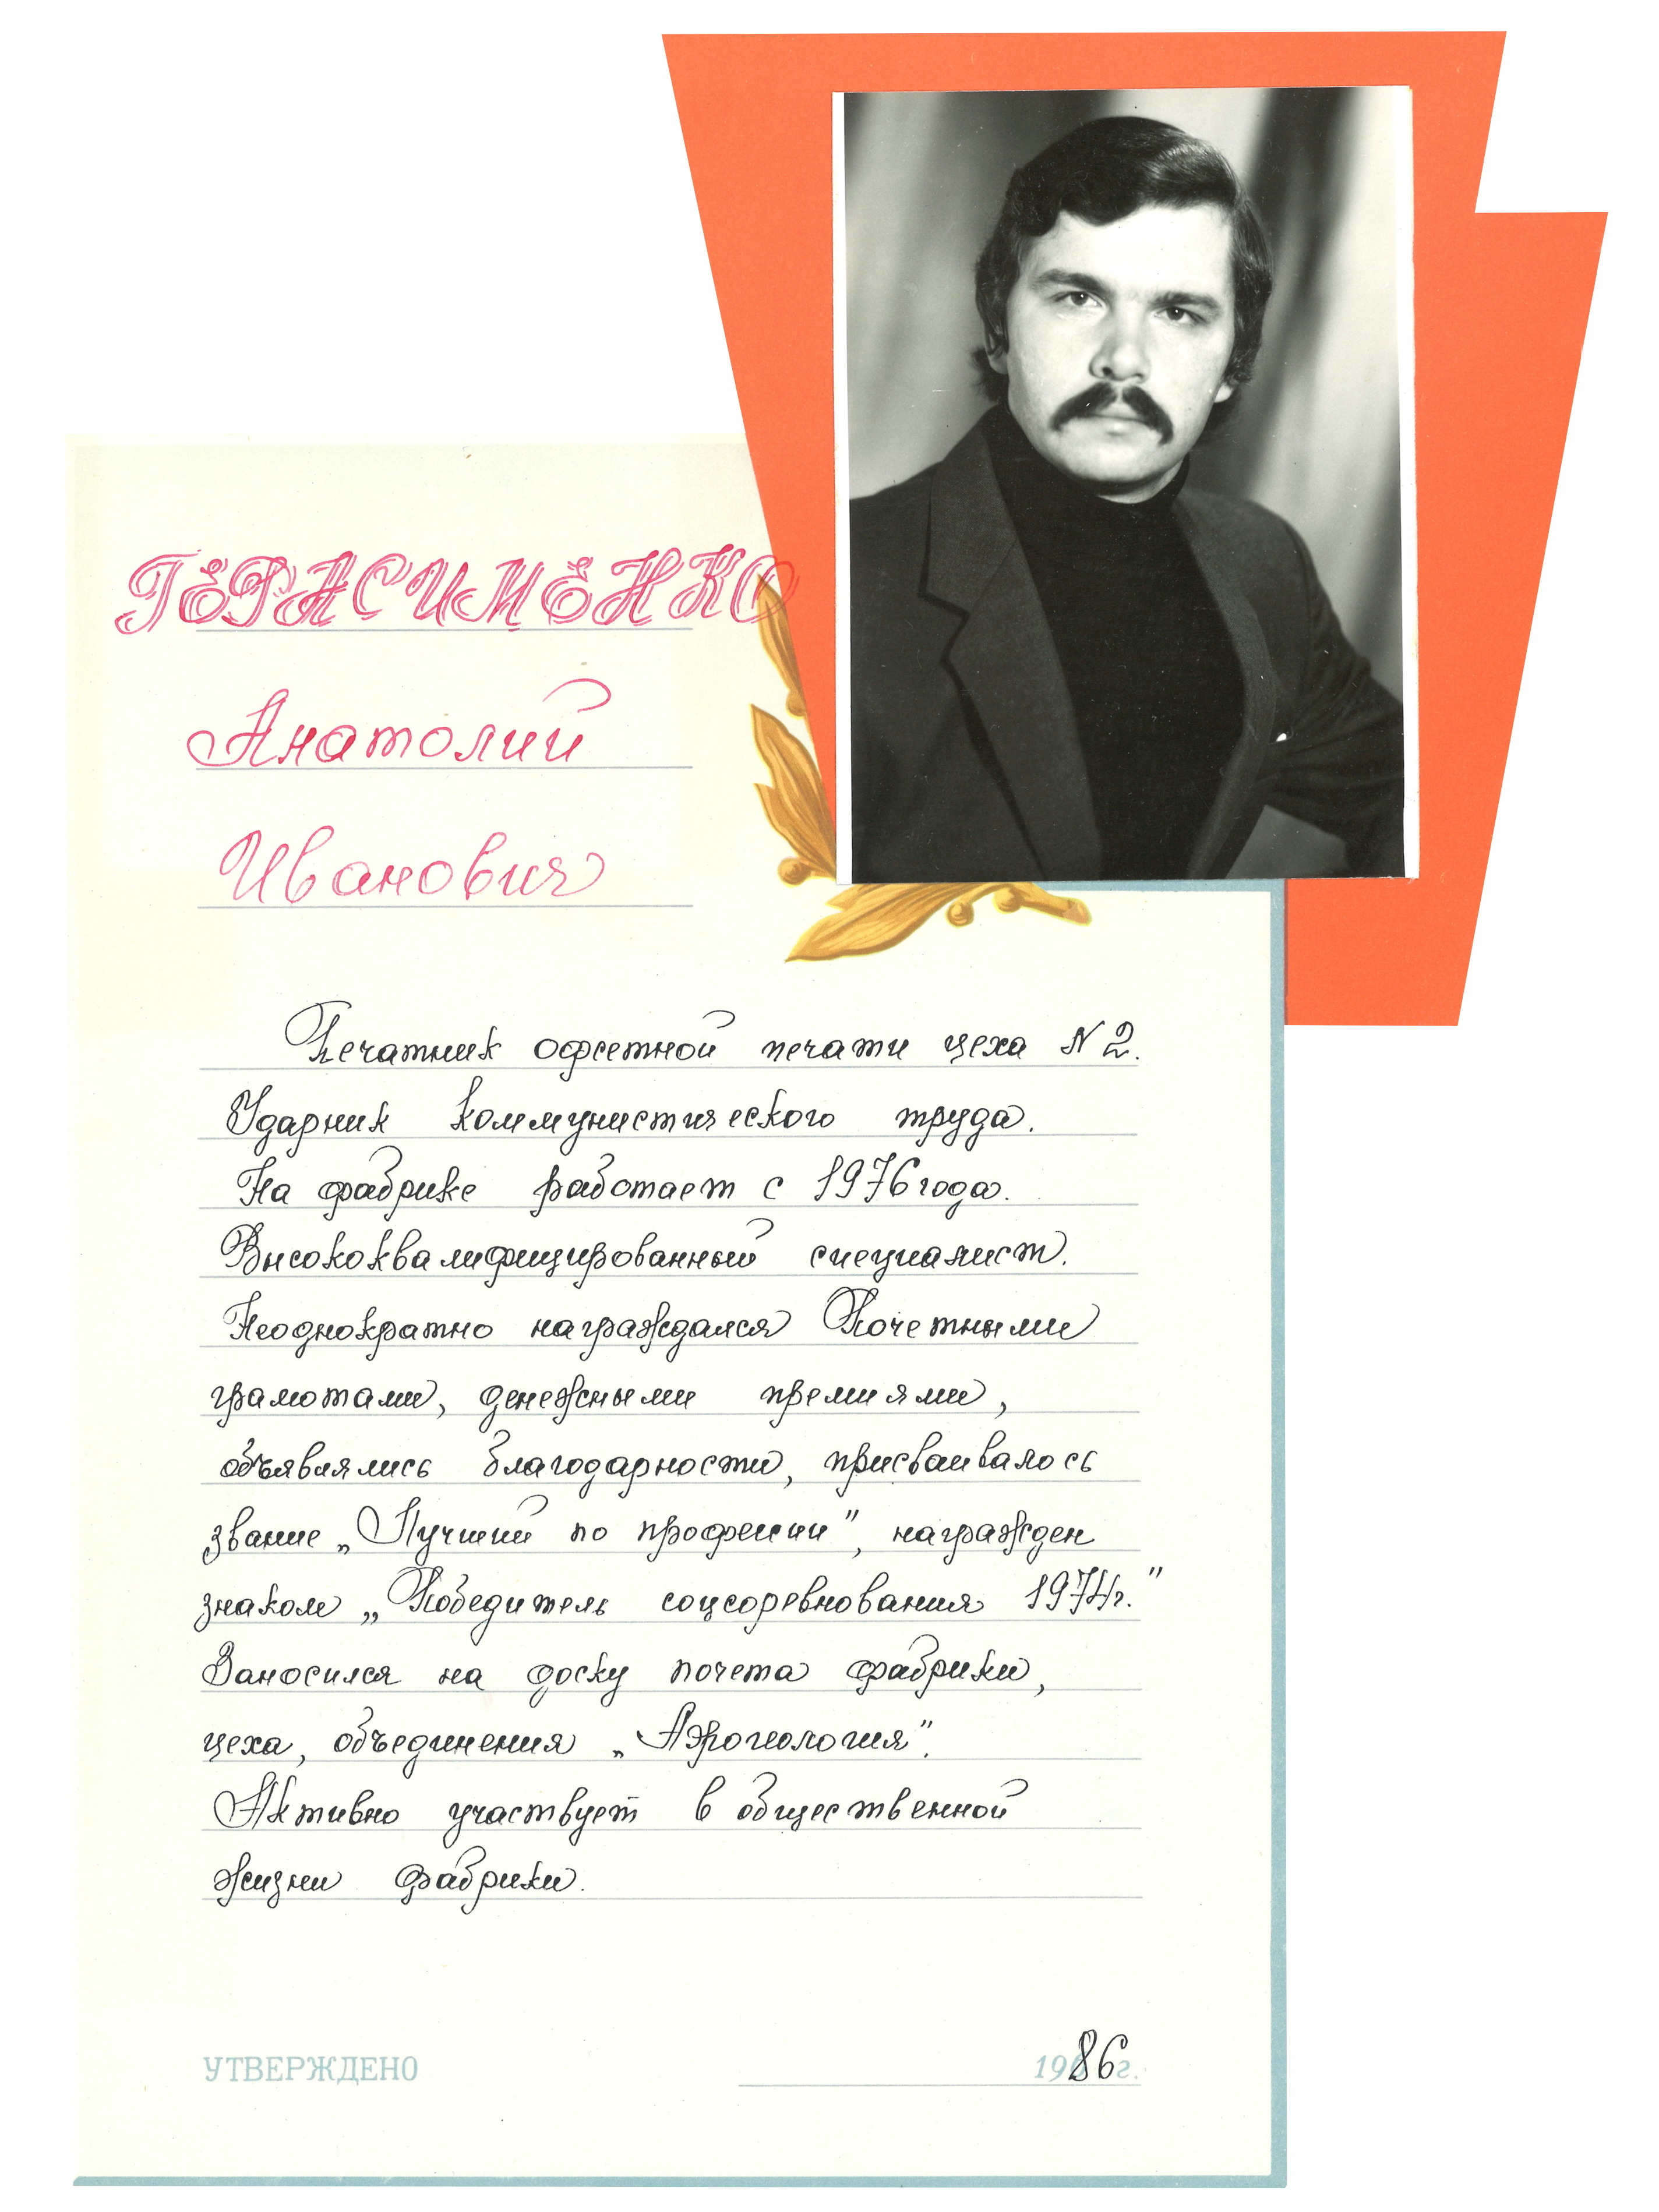 ГЕРАСИМЕНКО
Анатолий
Иванович
Печатник офсетной печати цеха N 2.
Ударник коммунистического труда.
На фабрике работает с 1976 года.
Высококвалифицированный специалист.
Неоднократно награждался Почетными
грамотами, денежными премиями,
объявлялись благодарности, присваивалось
звание „Лучший по професии", награжден
знаком „Победитель соцсоревнования 1974г."
Заносился на доску почета фабрики,
цеха, объединения „Аэрогеология".
Активно участвует в общественной
жизни фабрики.
УТВЕРЖДЕНО 1986г.